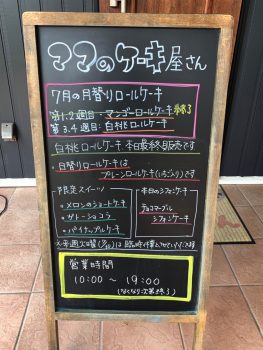 ママのケーキ屋さん
7月の月替りロールケーキ
第1.2週目：マンゴーロールケーキ 終了
第3.4週目：白桃ロールケーキ
白桃ロールケーキ 本日最終販売です
・日替りロールケーキは
プレーンロールケーキ(いちごのり)です
限定スイーツ
・メロンのショートケーキ
・ガトーショコラ
・パイナップルケーキ
本日のシフォンケーキ
チョコマーブル
シフォンケーキ
営業時間
10:00 〜 19:00
(なくなり次第終了)